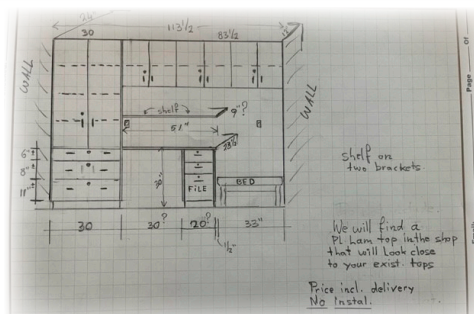 24"
113½
30
83½
12
WALL
WALL
shelf
9"?
51"
28½
6"
8"
11"
30"
FILE
BED
30
30?
20?
33"
½"
shelf on
two brackets
We will find a
Pl. Lam top in the shop
that will Look close
to your exist. tops
Price incl. delivery
No Instal.
Page
of